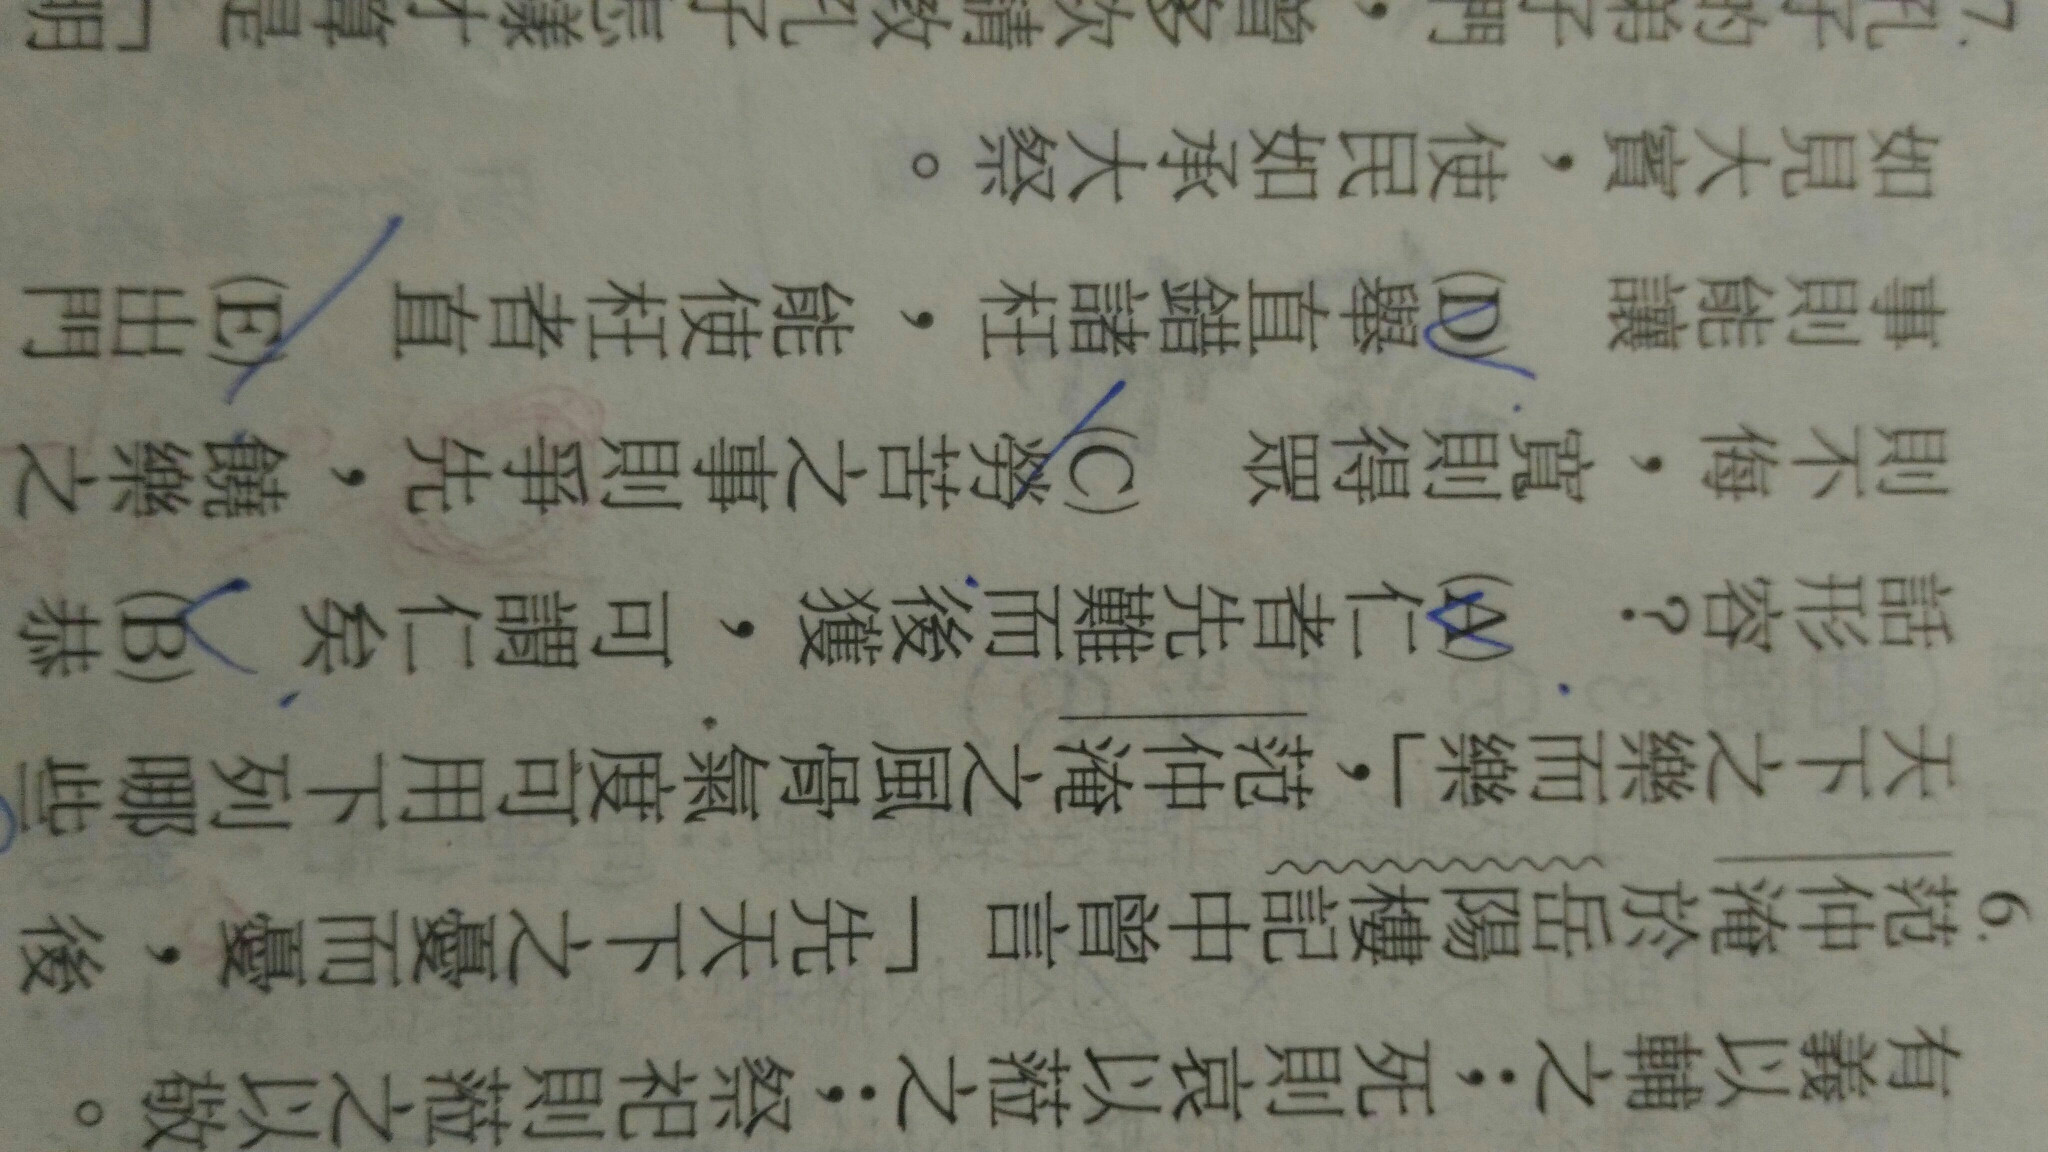 有義以輔之；死則哀以蒞之；祭祀則蒞之以敬。
6.范仲淹於岳陽樓記中曾言「先天下之憂而憂，後
天下之樂而樂」，范仲淹之風骨氣度可用下列哪些
話形容？ (A)仁者先難而後獲，可謂仁矣 (B)恭
則不侮，寬則得眾 (C)勞苦之事則爭先，饒樂之
事則能讓 (D)舉直錯諸枉，能使枉者直 (E)出門
如見大賓，使民如承大祭。
7.孔子的弟子門，曾多次請教孔子怎樣才算是「明